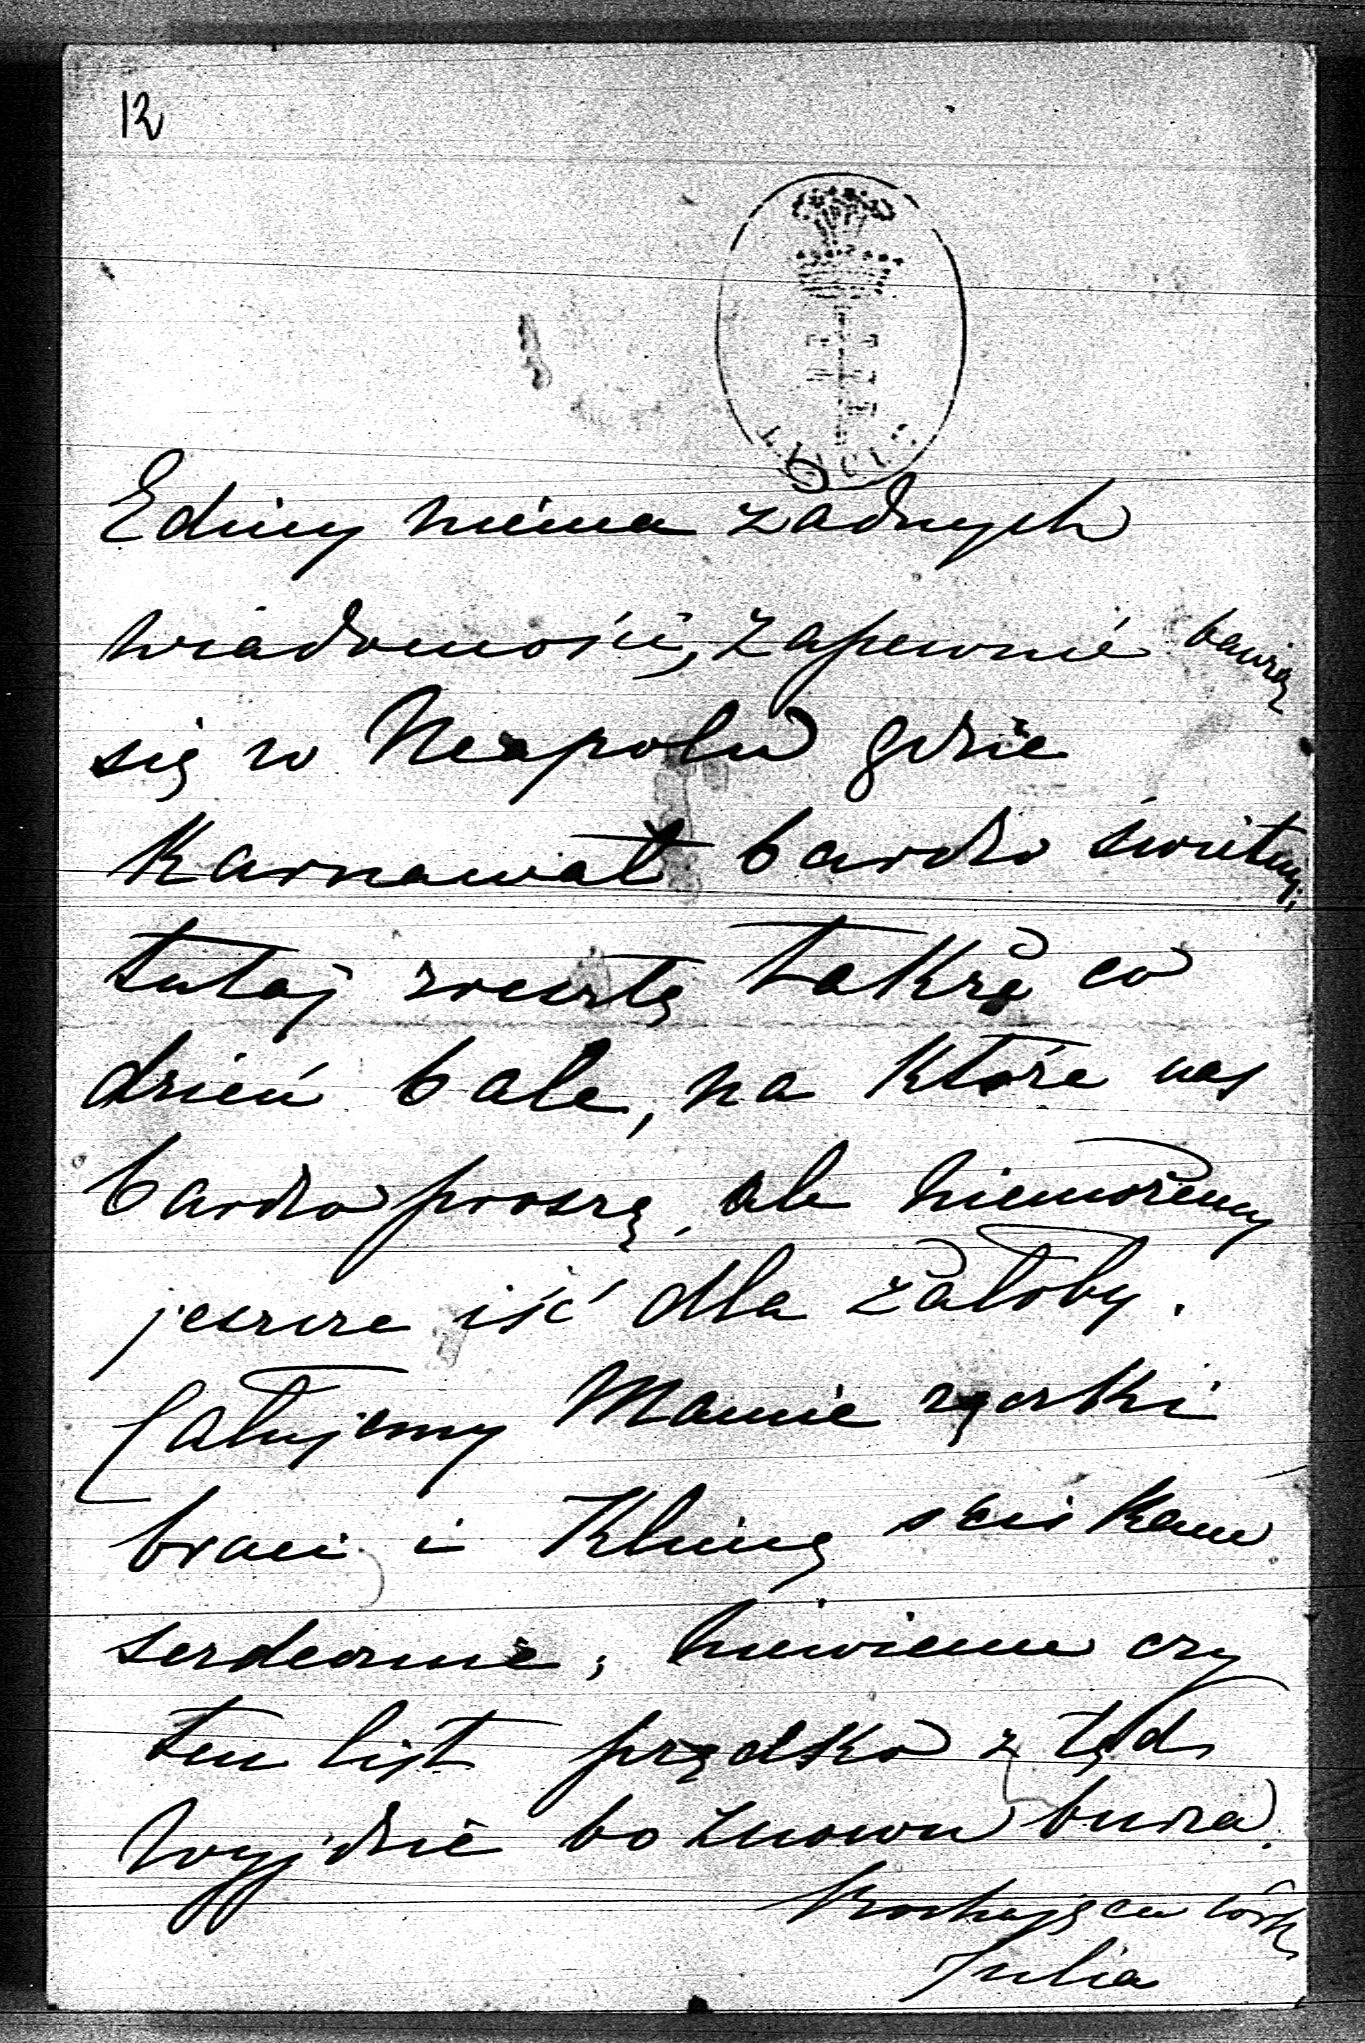 12
Ediny niéma żadnych
wiadomości, zapewnie bawią
się w Neapolu gdzie
Karnawał bardzo świetny,
tutaj zresztą także co
dzień bale, na które nas
bardzo proszą, ale niemożemy
jeszcze iść dla żałoby.
Całujemy Mamie rączki
braci i Klimę sciskam
serdecznie, niewiem czy
ten list prędko z tąd
wyjdzie bo znowu burza.
Kochająca córka
Julia